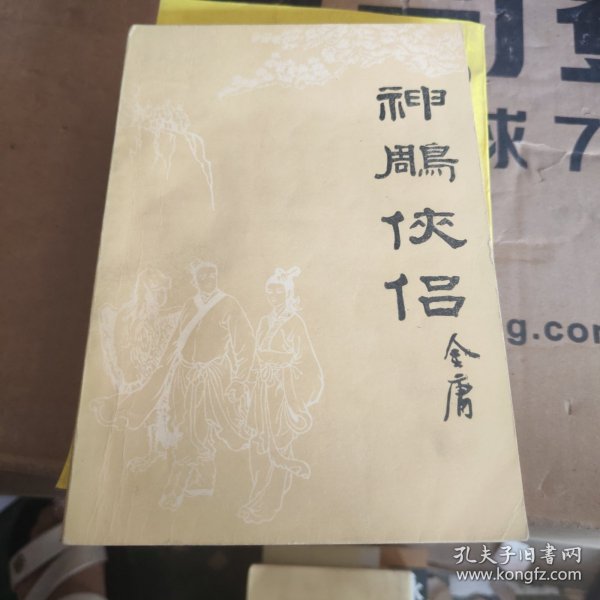 神鵰俠侣
金庸
球 7
g.com
孔夫子旧书网
www.kongfz.com